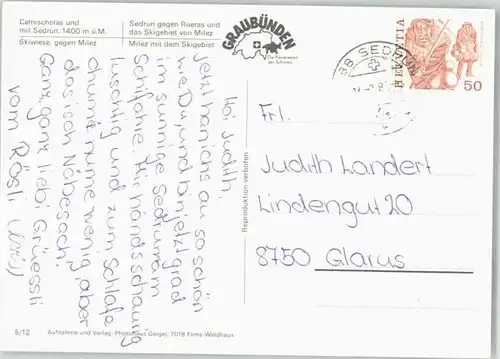 Camischolas und
mit Sedrun, 1400 m ü.M.
Skiwiese, gegen Milez
Sedrun gegen Rueras und
das Skigebiet von Milez
Milez mit dem Skigebiet
GRAUBÜNDEN
Die Ferienecke
der Schweiz
SEDRUN
HELVETIA
50
Hoi Judith,
Jetzt han ichs au so schön
wie Du, und bin jetzt grad
im sunnige Sedrun am
Schifahre. Mir händs schaurig
luschtig und zum Schlafe
chume nume wenig, aber
das isch Näbesach.
Ganz, ganz liebi Grüessli
vom Rösli
Frl.
Judith Landert
Lindengut 20
8750 Glarus
Reproduktion verboten
5/12
Aufnahme und Verlag: Photohaus Geiger, 7018 Flims-Waldhaus